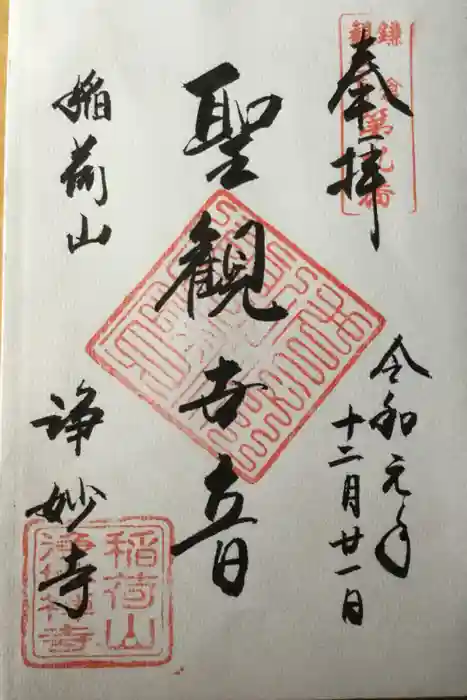 鎌倉
第九番
奉拝
令和元年
十二月廿一日
聖観世音
稲荷山
浄妙寺
稲荷山